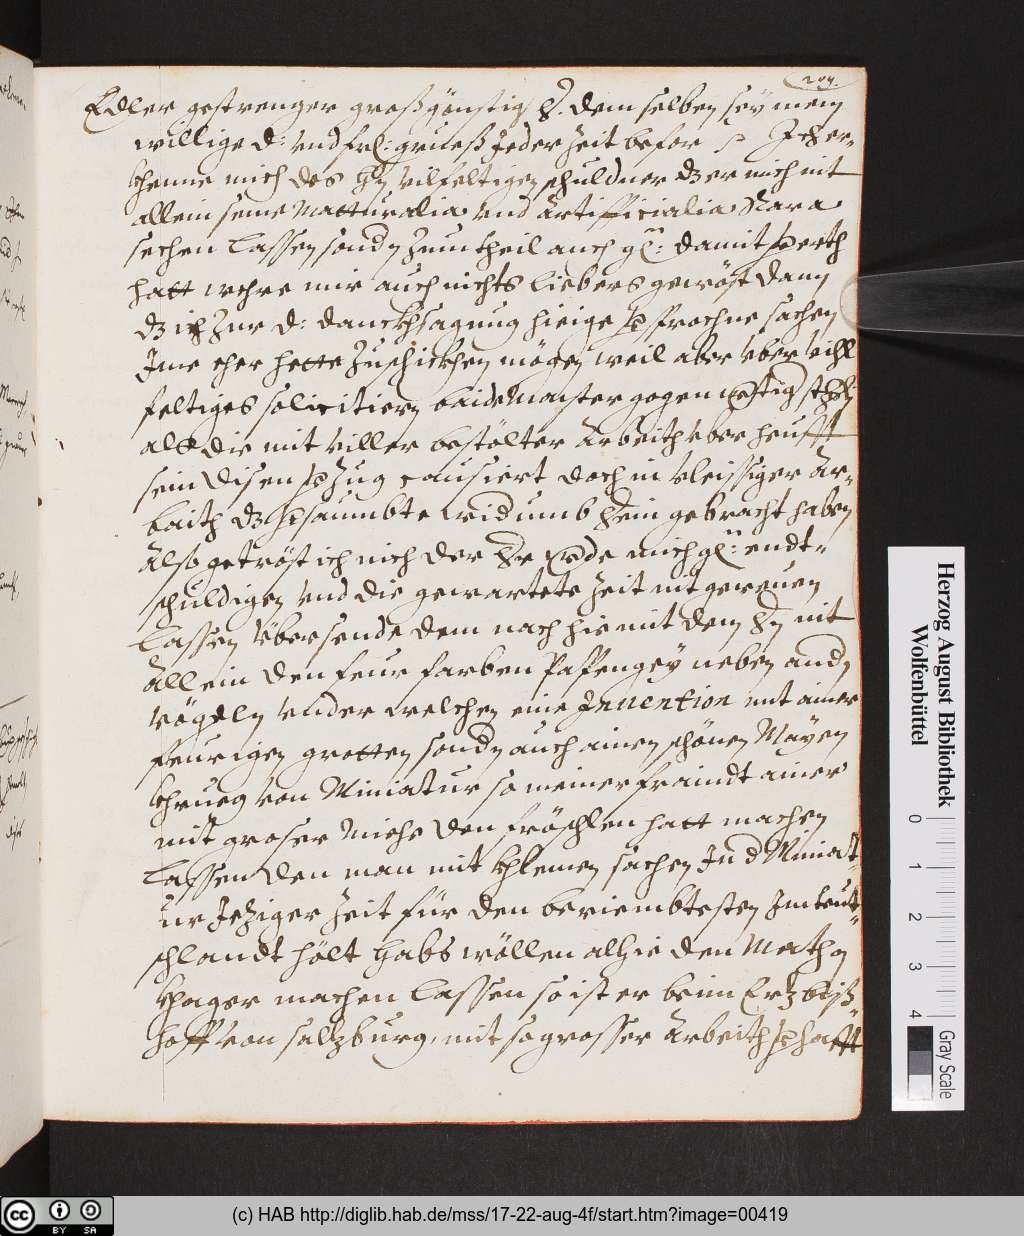 204.
Edler gestrenger großgönstig H. dem selben sey mein
willige d: und frl: grueß Jeder Zeit befor / Ich er-
khenne mich des Hn vilfeltigen schuldner dz er mich nit
allein seine Natturalia und Artifficialia Rara
sechen lassen sondn zum theil auch gl: damit verth
hatt were mir auch nichts liebers gewöst dann
dz ich Zur d: danckhsagung hieige versprochne sachen
Ime eher hette Zuschickhen mögen weil aber uber vihl
feltiges solicitiern baide Maister gogen
alß die mit viller bestölter Arbeith uber heufft
sein disen verzug causiert doch in vleissiger Ar-
baith dz versaumbte widumb herein gebracht haben
Also getröst ich mich der Hr werde mich gl: endt-
schuldigen und die gewartete Zeit nit gereuen
lassen Übersende dem nach hiemit dem Hn nit
Allein den feur farben Paffengey neben andn
vögeln under welchen eine Invention mit ainer
feurigen grotten sondn auch ainen schönen Mayen
khrueg von Miniatur so meiner fraindt ainer
mit groser Miehe den fröschlen hatt machen
lassen den man mit khlemen sachen In d Miniat-
ur Jeziger Zeit für den beriembtesten Im teut-
schlandt hölt habs wöllen alhie den Mathn
khager machen lassen so ist er beim Ertzbisch-
hoff von salzburg, mit so grosser Arbeith verhafft
Herzog August Bibliothek
Wolfenbüttel
0 1 2 3 4
Gray Scale
cc BY SA
(c) HAB http://diglib.hab.de/mss/17-22-aug-4f/start.htm?image=00419